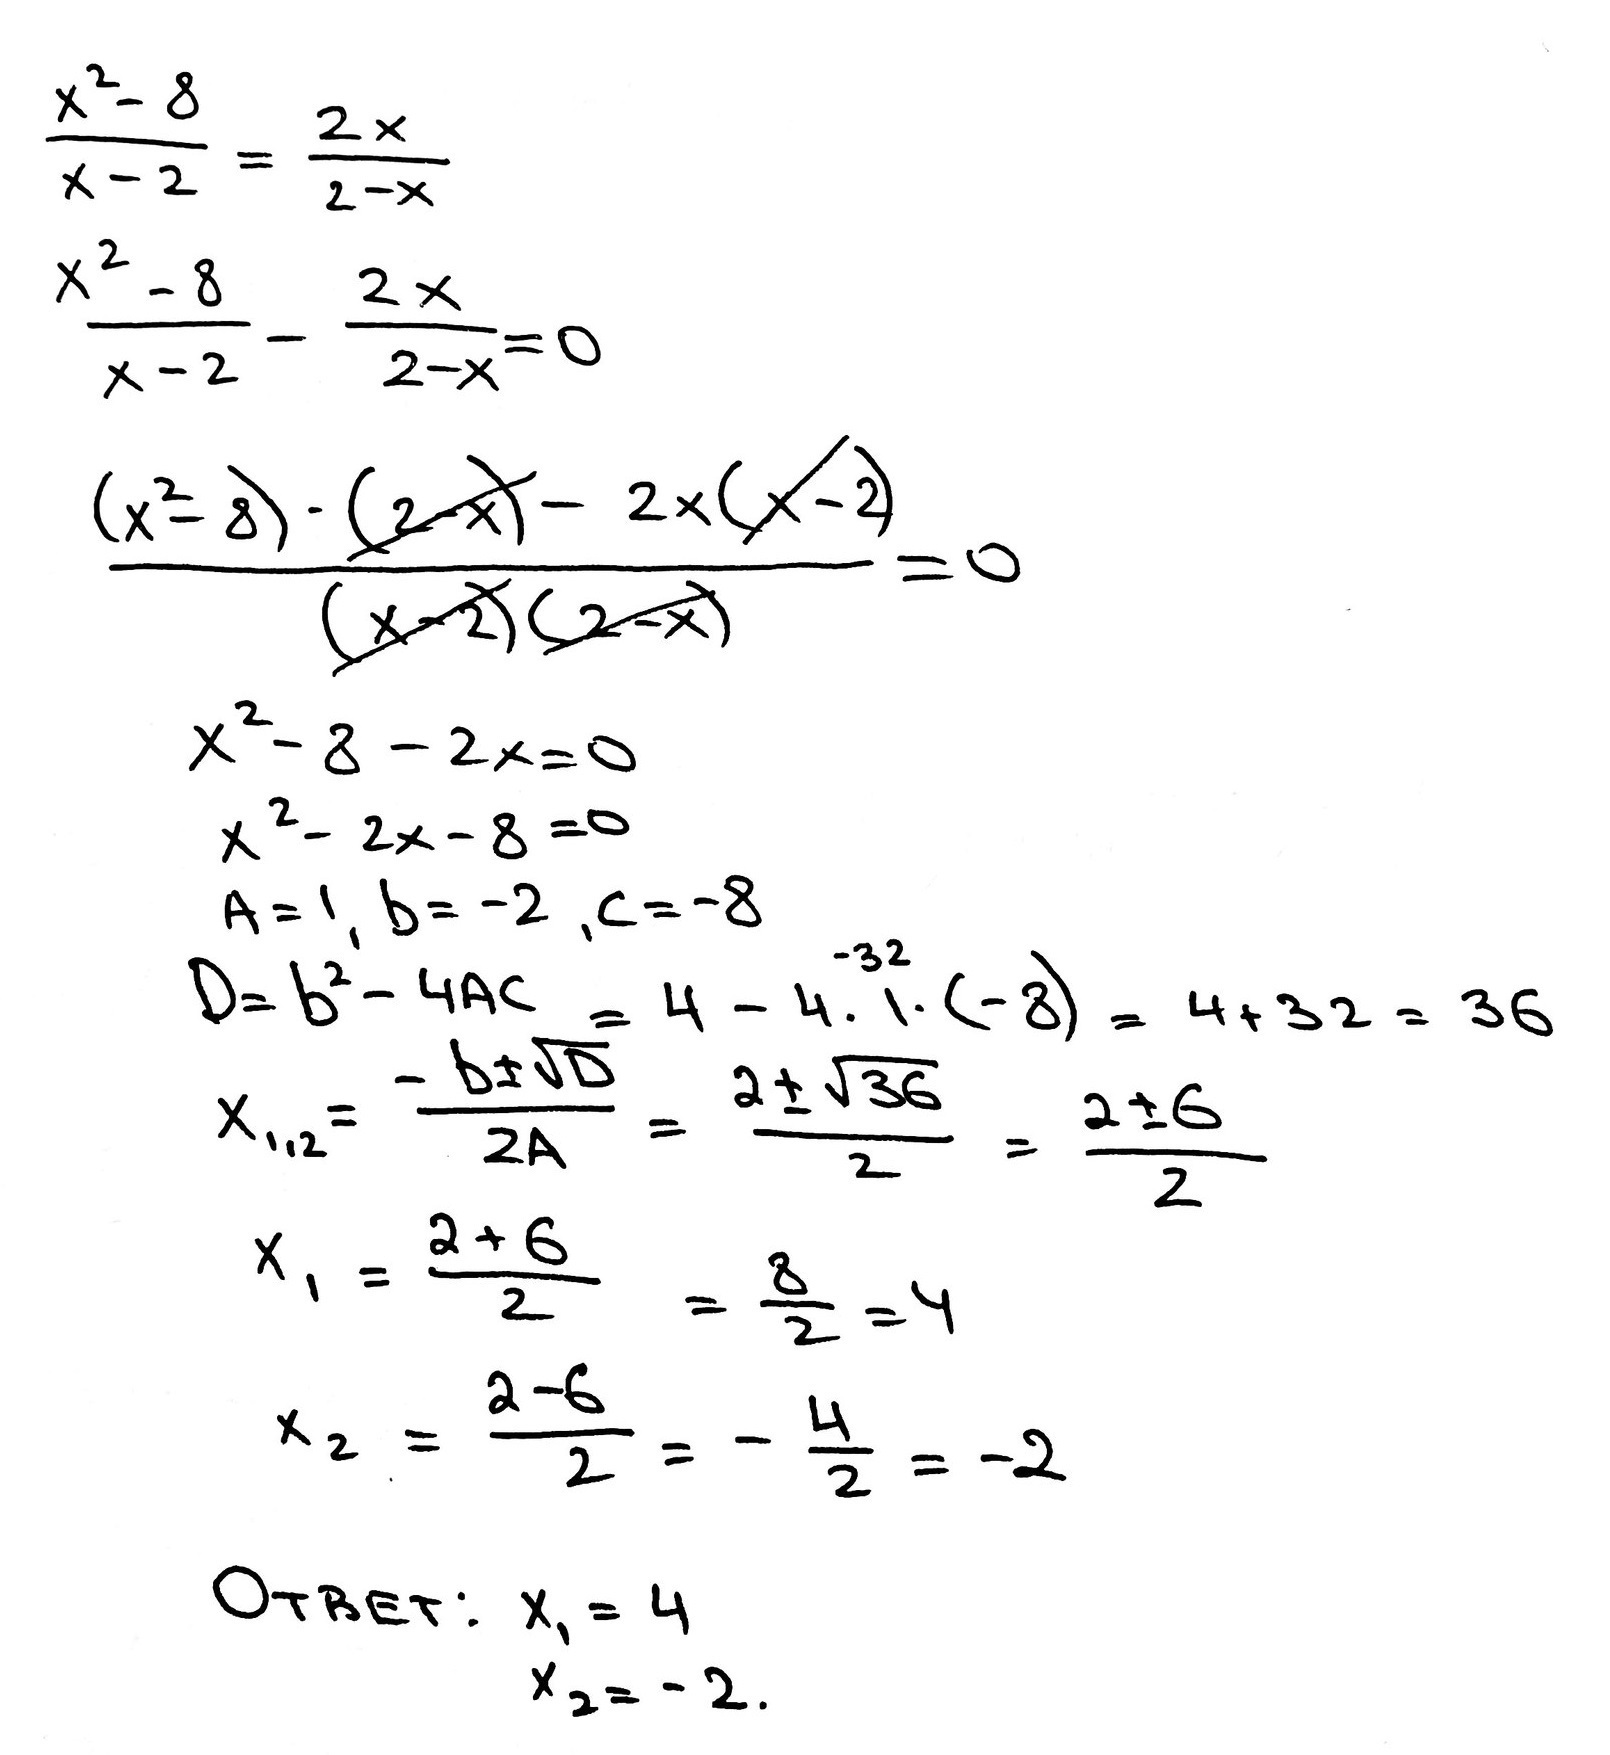 x² - 8 / x - 2 = 2x / 2 - x
x² - 8 / x - 2 - 2x / 2 - x = 0
(x² - 8) · (2 - x) - 2x(x - 2) / (x - 2)(2 - x) = 0
x² - 8 - 2x = 0
x² - 2x - 8 = 0
A = 1, b = -2, c = -8
D = b² - 4AC = 4 - 4 · 1 · (-8) = 4 + 32 = 36
-32
x₁,₂ = - b ± √D / 2A = 2 ± √36 / 2 = 2 ± 6 / 2
x₁ = 2 + 6 / 2 = 8 / 2 = 4
x₂ = 2 - 6 / 2 = - 4 / 2 = -2
Ответ: x₁ = 4
x₂ = - 2.